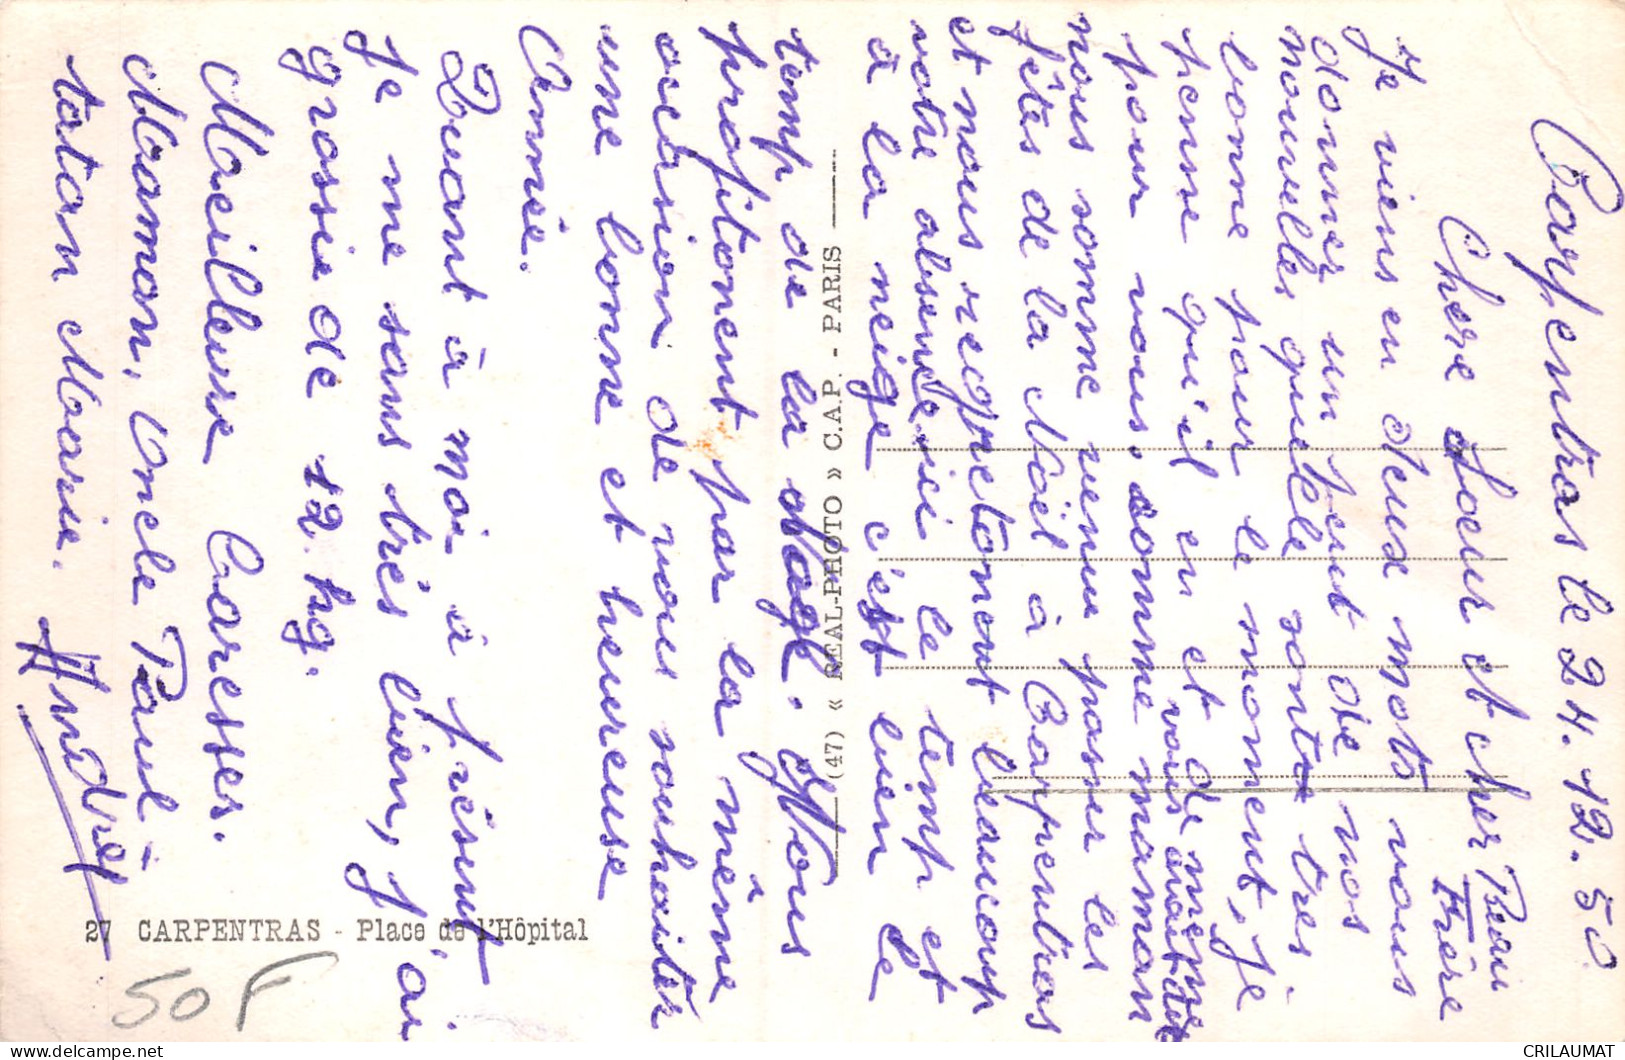 Carpentras le 24.12.50.
Chere Soeur et cher Beau
Frère
Je viens en deux mots vous
donner un peut de nos
nouvelles qu'elle sont tres
bonne pour le moment, je
pense qu'il en et de même
pour vous, comme maman
vous avait dit
nous somme venu passer les
fêtes de la Noël à Carpentras
et nous regretonent beaucoup
votre absence ici le temp et
à la neige c'est bien le
temp de la Noël. Nous
profitonent par la même
occasion de vous souhaiter
une bonne et heureuse
Année.
Quant à moi à présent
je me sans très bien, j'ai
grossie de 12 kg.
Meilleure Caresses.
Maman, oncle Paul -
tatan Marie.
André
(47) « REAL-PHOTO » C.A.P. - PARIS
27 CARPENTRAS - Place de l'Hôpital
50 F
CRILAUMAT